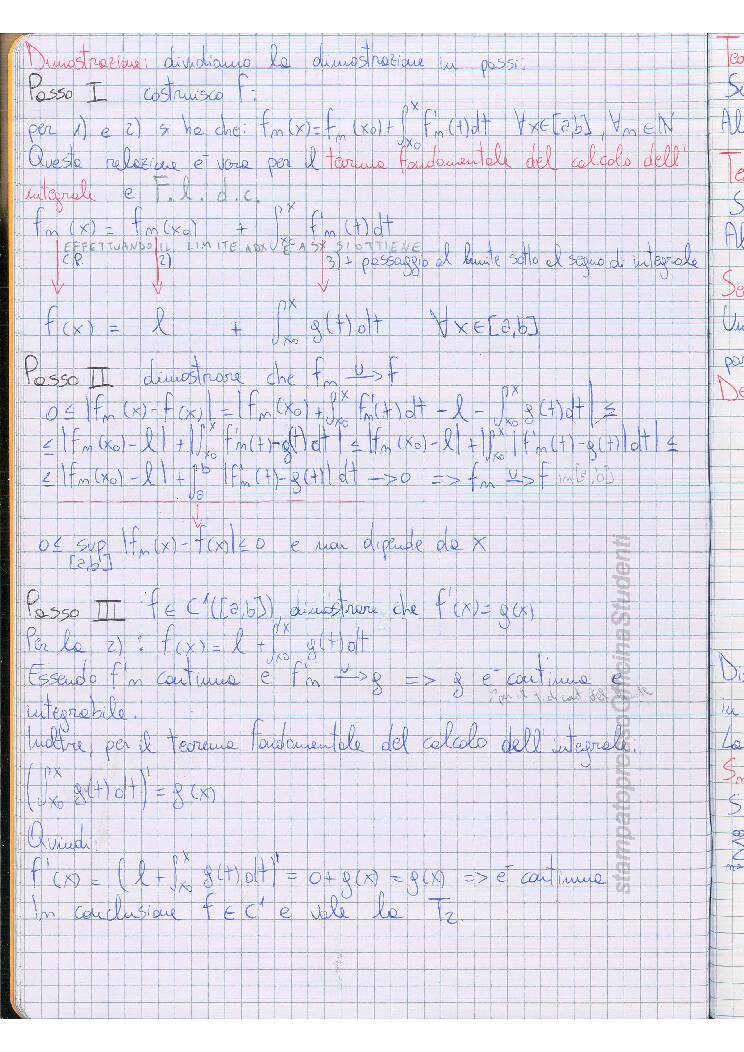 Dimostrazione: dividiamo la dimostrazione in passi:
Passo I costruisco f:
per 1) e 2) si ha che: fₙ(x)=fₙ(x₀)+∫ₓ₀ˣ f'ₙ(t)dt ∀x∈[a,b], ∀n∈N
Questa relazione è vera per il teorema fondamentale del calcolo dell'
integrale e F.l.d.c.
fₙ(x) = fₙ(x₀) + ∫ₓ₀ˣ f'ₙ(t)dt
EFFETTUANDO IL LIMITE A DX E A SX SI OTTIENE
C.P. 2) 3) + passaggio al limite sotto al segno di integrale
f(x) = l + ∫ₓ₀ˣ g(t)dt ∀x∈[a,b]
Passo II dimostrare che fₙ –u→ f
0 ≤ |fₙ(x)-f(x)| = |fₙ(x₀)+∫ₓ₀ˣ f'ₙ(t)dt - l - ∫ₓ₀ˣ g(t)dt| ≤
≤ |fₙ(x₀)-l| + |∫ₓ₀ˣ f'ₙ(t)-g(t)dt| ≤ |fₙ(x₀)-l| + |∫ₓ₀ˣ |f'ₙ(t)-g(t)|dt| ≤
≤ |fₙ(x₀)-l| + ∫ₐᵇ |f'ₙ(t)-g(t)| dt → 0 => fₙ –u→ f in [a,b]
0 ≤ sup |fₙ(x)-f(x)| ≤ 0 e non dipende da x
[a,b]
Passo III f∈C¹([a,b]) dimostrare che f'(x)=g(x)
Per la 2): f(x) = l + ∫ₓ₀ˣ g(t)dt
Essendo f'n continua e f'n –u→ g => g è continua e
integrabile.
Inoltre, per il teorema fondamentale del calcolo dell'integrale.
(∫ₓ₀ˣ g(t)dt)' = g(x)
Quindi:
f'(x) = (l + ∫ₓ₀ˣ g(t)dt)' = 0+g(x) = g(x) => è continua
In conclusione f∈C¹ e vale la T₂
stampatopressoOfficinaStudenti